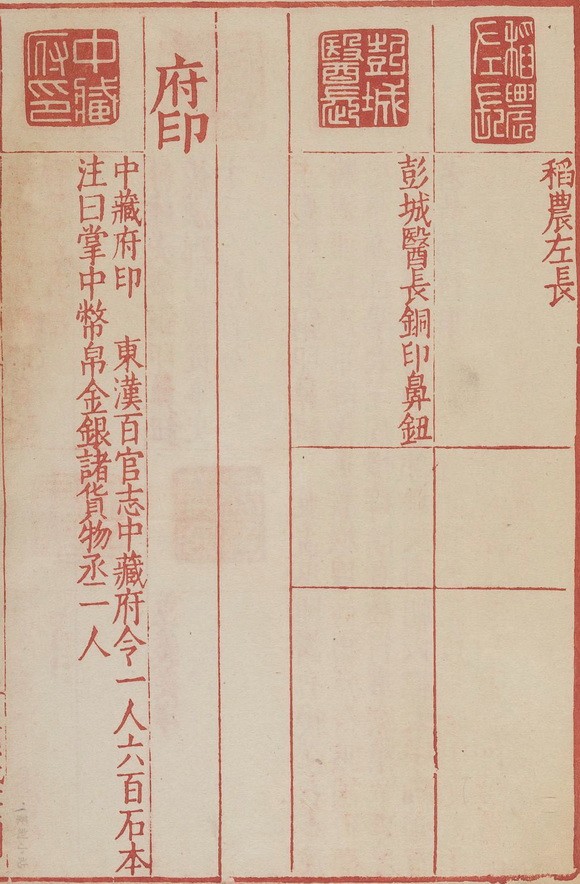 稻農左長
稻農左長
彭城醫長
彭城醫長銅印鼻鈕
府印
中藏府印
中藏府印　東漢百官志中藏府令一人六百石本
注曰掌中幣帛金銀諸貨物丞一人